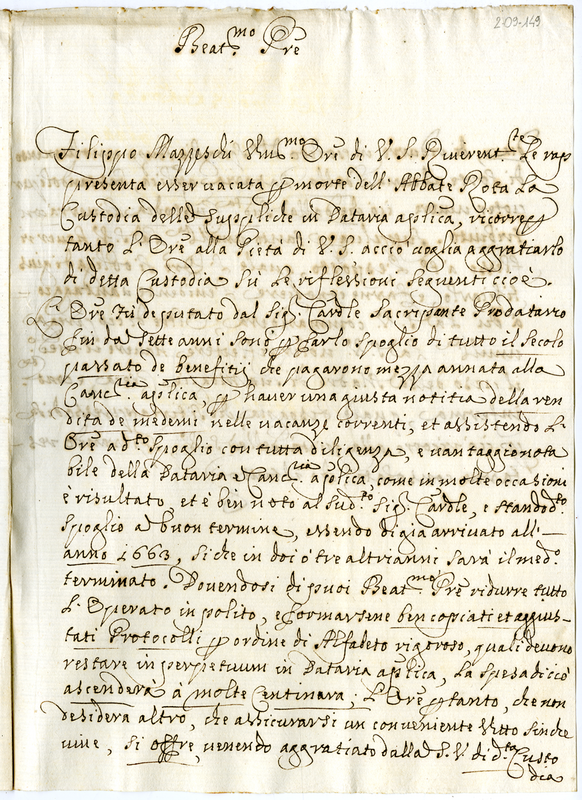 2-09-149
Beat.mo Pre
Filippo Mazzeschi Vm.mo Ore di V. S. Riverent.te Le rap
presenta esser vacata p morte dell' Abbate Rota La
Custodia delle Suppliche in Dataria aplica, ricorre p
tanto L' Ore alla Pietà di V. S. acciò voglia aggratiarlo
di detta Custodia sù Le riflessioni sequenti cioè.
L' Ore fù deputato dal Sig. Cardle Sacripante Prodatario
fin da sette anni sono p farlo spoglio di tutto il secolo
passato de benefitij che pagarono mezza annata alla
Canc.ria aplica, p haver una giusta notitia della ven
dita de medemi nelle vacanze correnti, et assistendo L'
Ore a d.to spoglio con tutta diligenza, e vantaggio nota
bile della Dataria e Canc.ria aplica, come in molte occasioni
è risultato, et è ben noto al sud.to Sig. Cardle, e stando d.to
spoglio a buon termine, essendo di già arrivato all'
anno 1663, si che in doi ò tre altri anni sarà il med.o
terminato. Dovendosi di puoi Beat.mo Pre ridurre tutto
L' Operato in polito, e formarsene ben copiati et aggius-
tati Protocolli p ordine di Alfabeto rigoroso, quali devono
restare in perpetuum in Dataria aplica, La spesa di ciò
ascenderà à molte Centinara; L' Ore p tanto, che non
desidera altro, che assicurarsi un conveniente Vitto sinche
vive, si offre, venendo aggratiato dalla S. V. di d.ta Custo
dia